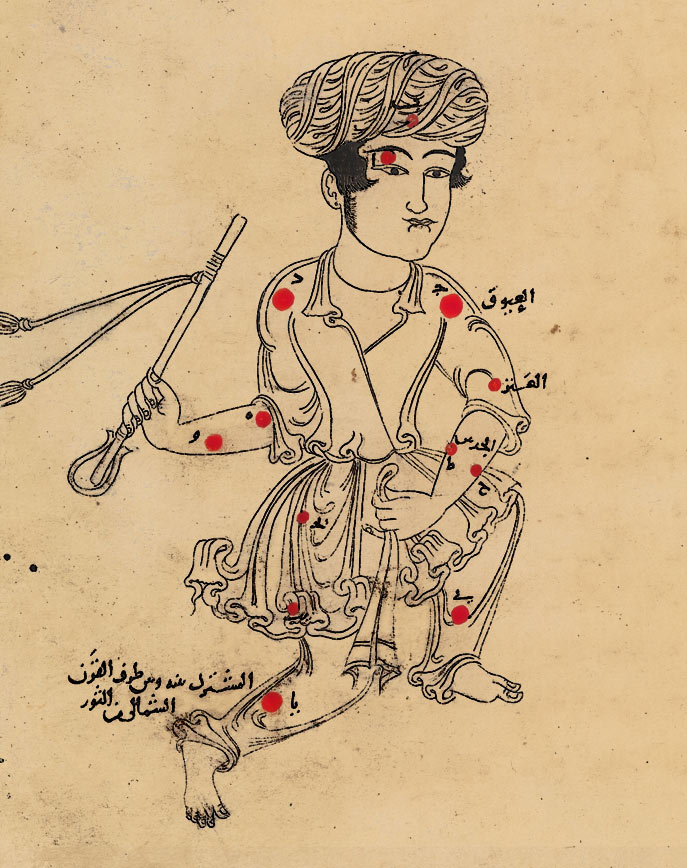 د
جـ
العيوق
العنز
الجديين
ط
ح
ه
و
يا
المشترك بينه وبين طرف القرن
الشمالى من الثور